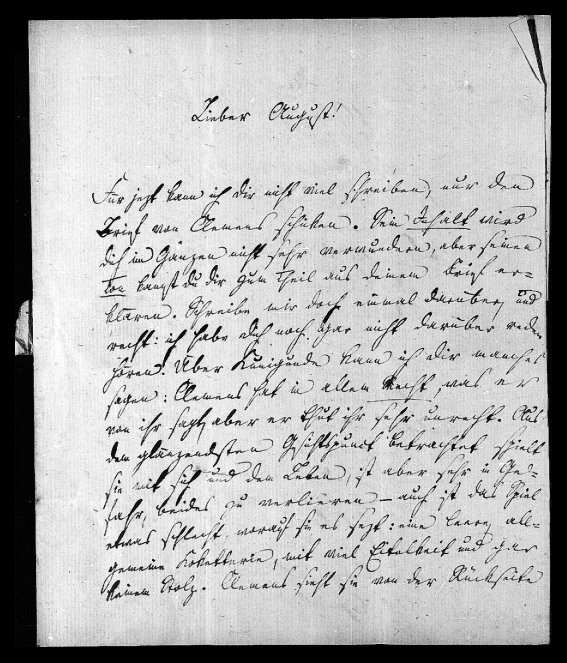 Lieber August!
Für jezt kann ich dir nicht viel schreiben, nur den
Brief von Clemens schicken. Sein Inhalt wird
dich im Ganzen nicht sehr verwundern, aber seinen
Ton kannst du dir zum Theil aus deinem Brief er-
klären. Schreibe mir doch einmal darüber, und
recht: ich habe dich noch gar nicht darüber reden
hören. Über Kunigunde kann ich dir manches
sagen: Clemens hat in allem Recht, was er
von ihr sagt, aber er thut ihr sehr unrecht. Aus
dem glänzendsten Gesichtspunct betrachtet spielt
sie mit sich und dem Leben, ist aber sehr in Ge-
fahr, beides zu verlieren – auch ist das Spiel
etwas schlecht, worauf sie es sezt: eine leere, all-
gemeine Koketterie, mit viel Eitelkeit und gar
keinem Stolz. Clemens sieht sie von der Rückseite